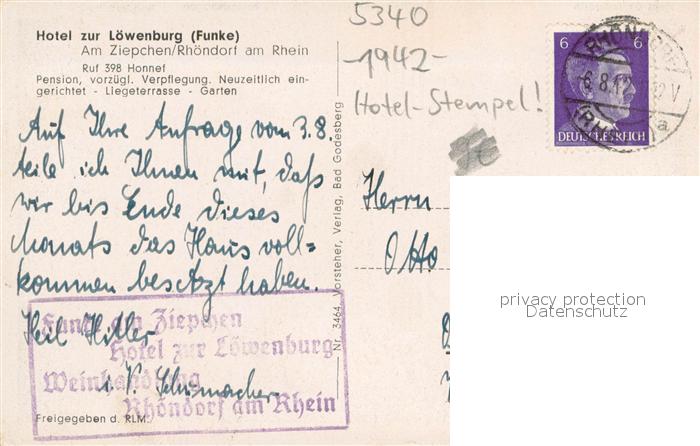 Hotel zur Löwenburg (Funke)
Am Ziepchen/Rhöndorf am Rhein
Ruf 398 Honnef
Pension, vorzügl. Verpflegung. Neuzeitlich ein-
gerichtet - Liegeterrasse - Garten
Auf Ihre Anfrage vom 3.8.
teile ich Ihnen mit, daß
wir bis Ende dieses
Monats das Haus voll=
kommen besetzt haben.
Heil Hitler
i. V. Schumacher
Funke am Ziepchen
Hotel zur Löwenburg
Weinhandlung
Rhöndorf am Rhein
Freigegeben d. RLM.
Nr. 3464 Vorsteher, Verlag, Bad Godesberg
5340
-1942-
Hotel-Stempel!
6 6
DEUTSCHES REICH
RHÖNDORF
6.8.42
a
Herrn
Otto
privacy protection
Datenschutz